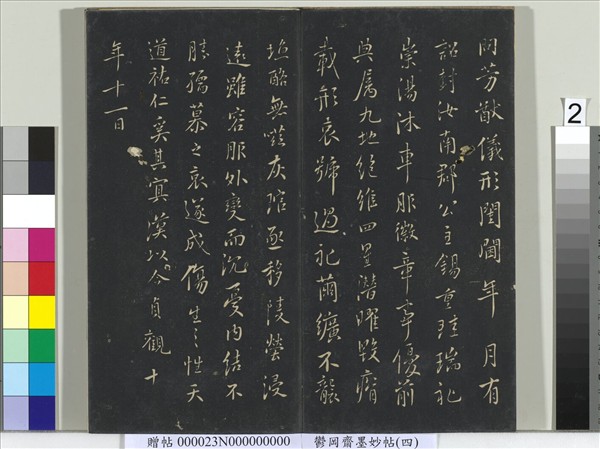 問芳猷儀形閨閫年 月有
詔封汝南郡公主錫重珪瑞礼
崇湯沐車服徽章事優前
典屬九地絕維四星潛曜毀瘠
載形哀號過礼繭纊不襲
塩酪無嗞灰琯亟移陵塋浸
遠雖容服外變而沉憂內結不
勝孺慕之哀遂成傷生之性天
道祐仁奚其冥漠以今貞觀十
年十一日
2
贈帖 000023N000000000 鬱岡齋墨妙帖(四)